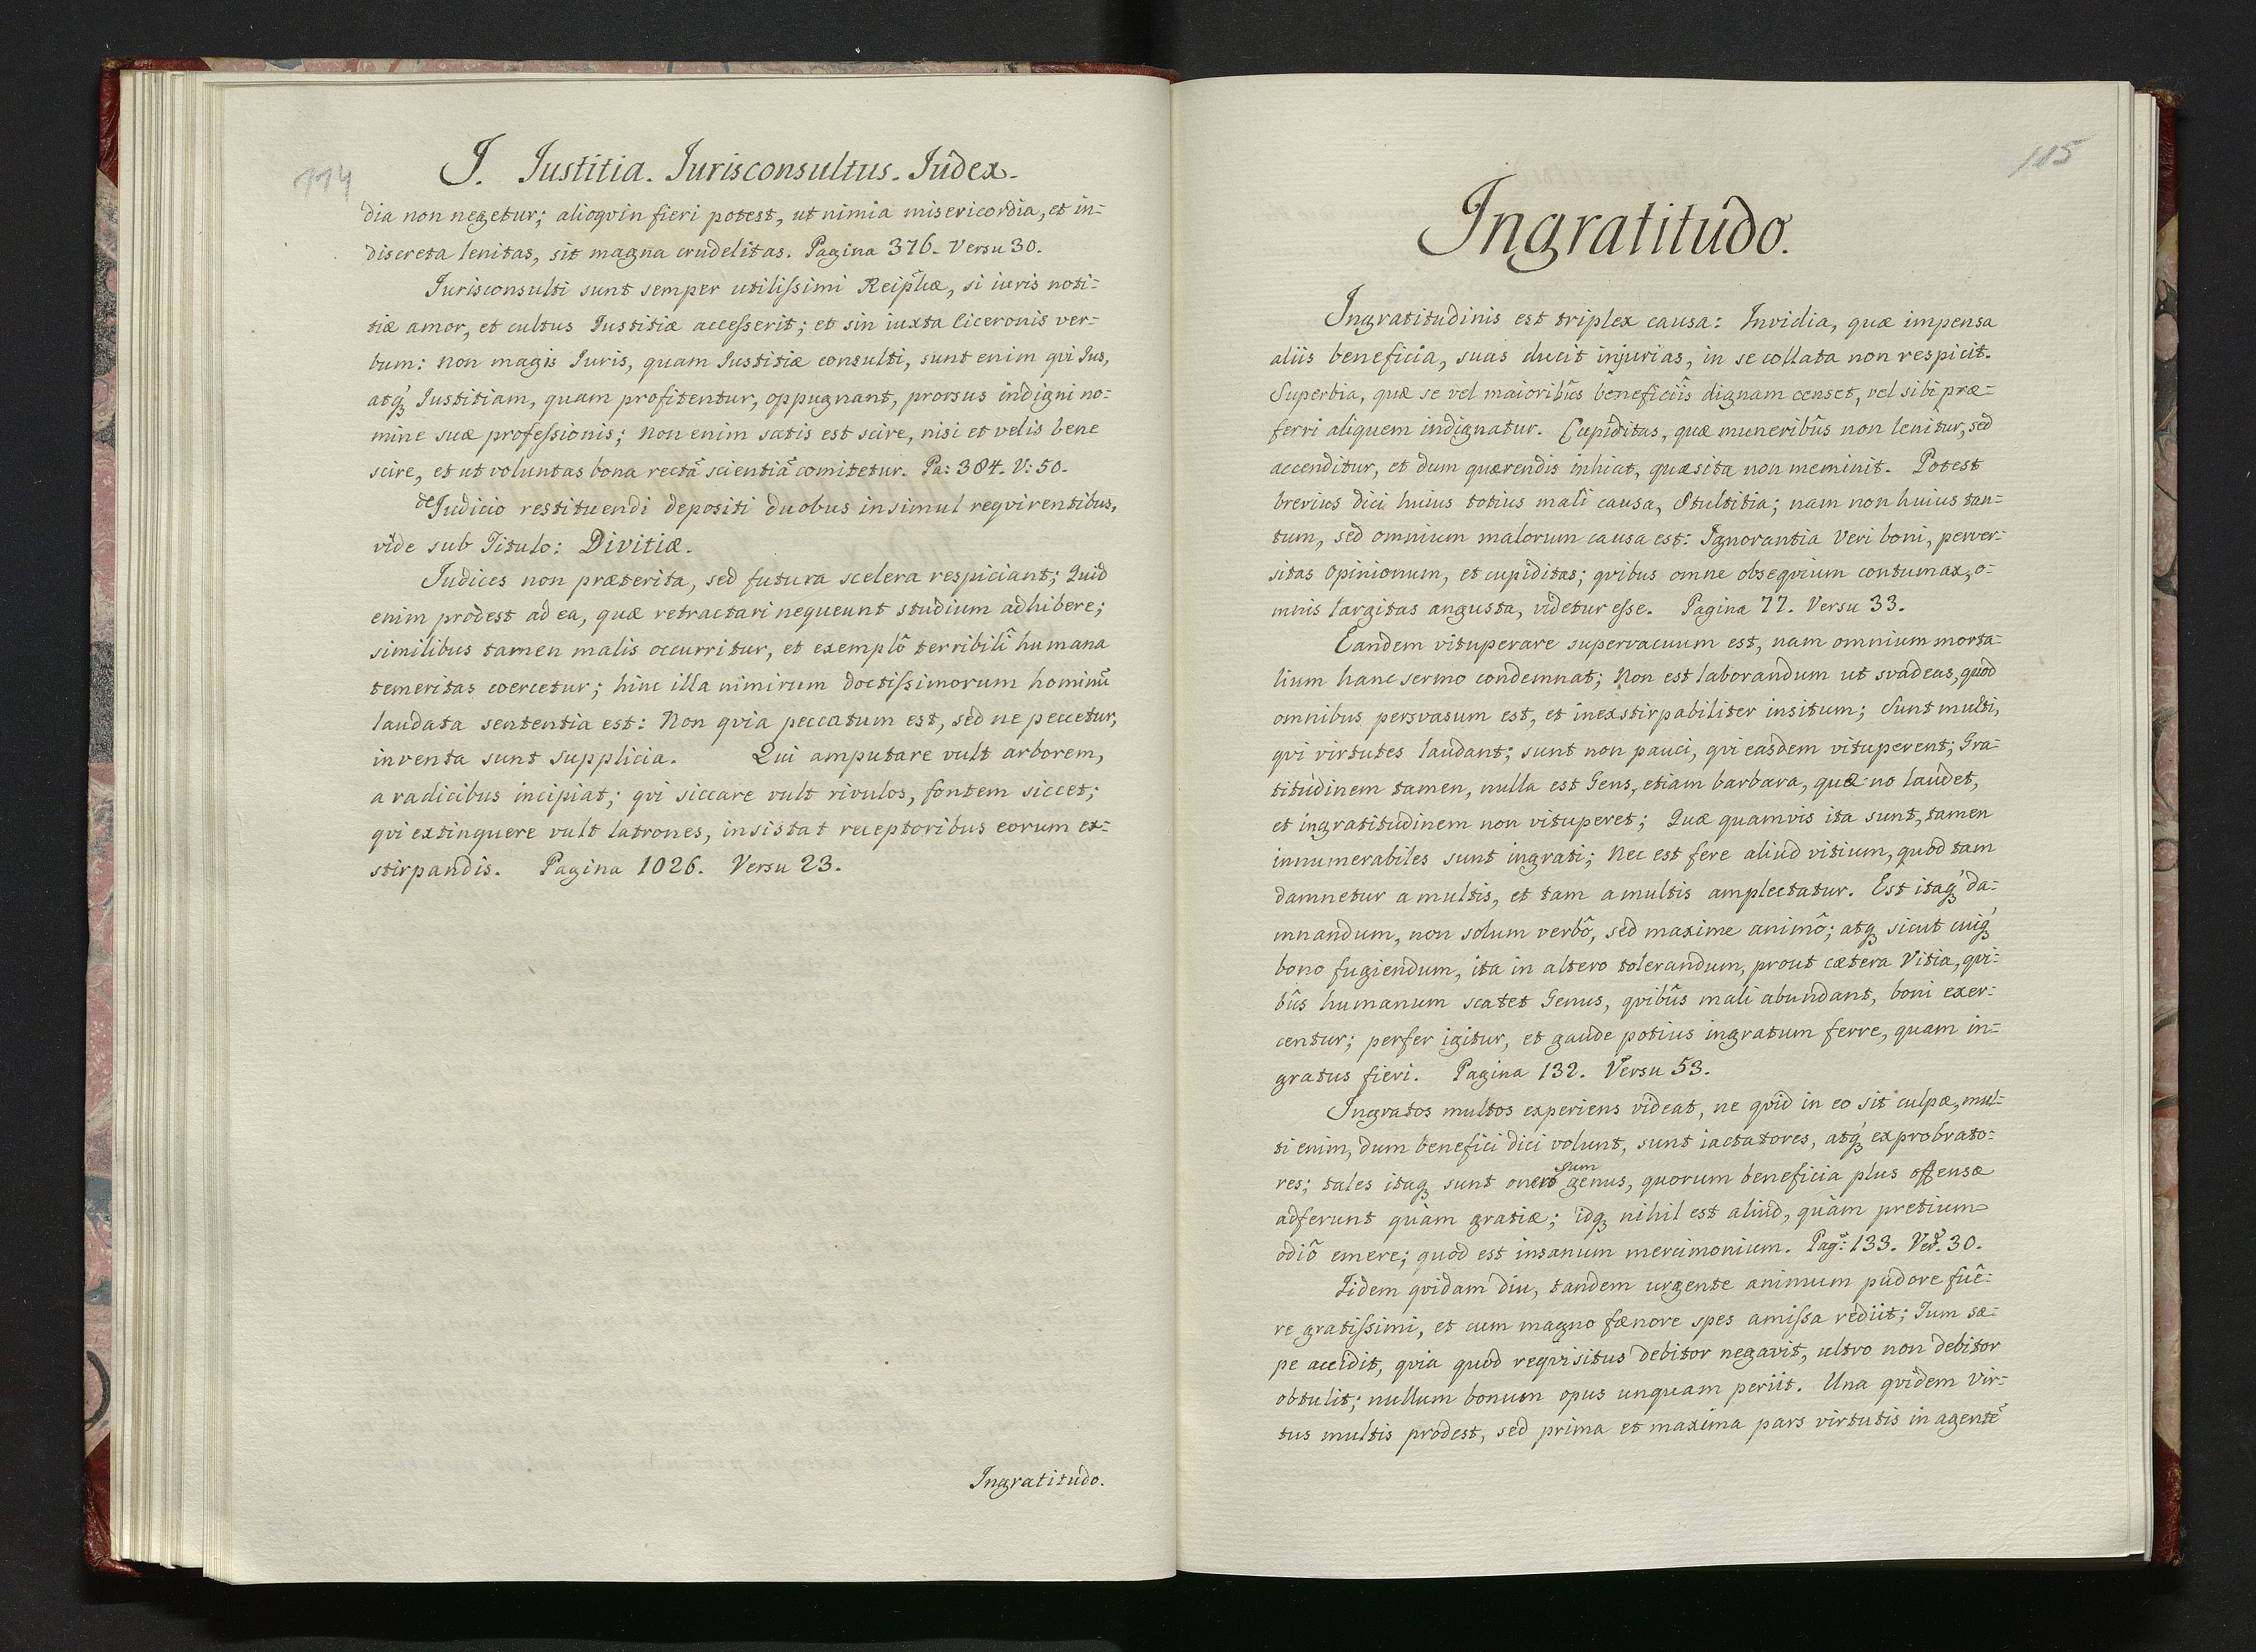 114
J. Iustitia. Iurisconsultus. Iudex.
dia non negetur; alioqvin fieri potest, ut nimia misericordia, et in=
discreta lenitas, sit magna crudelitas. Pagina 376. Versu 30.
Iurisconsulti sunt semper utilissimi Reiplicæ, si iuris noti=
tiæ amor, et cultus Iustitiæ accesserit; et sin iuxta Ciceronis ver=
bum: Non magis Iuris, quam Iustitiæ consulti, sunt enim qvi Ius,
atq́ꝫ Iustitiam, quam profitentur, oppugnant, prorsus indigni no=
mine suæ professionis; Non enim satis est scire, nisi et velis bene
scire, et ut voluntas bona rectã scientiã comitetur. Pa: 384. V: 50.
de Judicio restituendi depositi duobus insimul reqvirentibus,
vide sub Titulo: Divitiæ.
Iudices non præterita, sed futura scelera respiciant; Quid
enim prodest ad ea, quæ retractari nequeunt studium adhibere;
similibus tamen malis occurritur, et exemplô terribilî humana
temeritas coercetur; hinc illa nimirum doctissimorum hominũ
laudata sententia est: Non qvia peccatum est, sed ne peccetur,
inventa sunt supplicia. Qui amputare vult arborem,
a radicibus incipiat; qvi siccare vult rivulos, fontem siccet;
qvi extinquere vult latrones, insistat receptoribus eorum ex=
stirpandis. Pagina 1026. Versu 23.
Ingratitudo.
115
Ingratitudo.
Ingratitudinis est triplex causa: Invidia, quæ impensa
aliis beneficia, suas ducit injurias, in se collata non respicit.
Superbia, quæ se vel maioribûs beneficiîs dignam censet, vel sibi præ=
ferri aliquem indignatur. Cupiditas, quæ muneribûs non lenitur, sed
accenditur, et dum quærendis inhiat, quæsita non meminit. Potest
brevius dici huius totius mali causa, Stultitia; nam non huius tan=
tum, sed omnium malorum causa est: Ignorantia Veri boni, perver=
sitas Opinionum, et cupiditas; qvibus omne obseqvium contumax, o=
mnis largitas angusta, videtur esse. Pagina 77. Versu 33.
Eandem vituperare supervacuum est, nam omnium morta=
lium hanc sermo condemnat; Non est laborandum ut svadeas, quod
omnibus persvasum est, et inexstirpabiliter insitum; Sunt multi,
qvi virtutes laudant; sunt non pauci, qvi easdem vituperent; Gra=
titudinem tamen, nulla est Gens, etiam barbara, quæ no laudet,
et ingratitudinem non vituperet; Quæ quamvis ita sunt, tamen
innumerabiles sunt ingrati; Nec est fere aliud vitium, quod tam
damnetur a multis, et tam a multis amplectatur. Est itaq́ꝫ da=
mnandum, non solum verbô, sed maxime animô; atqꝫ sicut cuiq́ꝫ
bono fugiendum, ita in altero tolerandum, prout cætera Vitia, qvi=
bûs humanum scatet Genus, qvibûs mali abundant, boni exer=
centur; perfer igitur, et gaude potius ingratum ferre, quam in=
gratus fieri. Pagina 132. Versu 53.
Ingratos multos experiens videat, ne qvid in eo sit culpæ, mul=
ti enim, dum benefici dici volunt, sunt iactatores, atq́ꝫ exprobrato=
res; tales itaqꝫ sunt onerosum genus, quorum beneficia plus offensæ
adferunt quàm gratiæ; idqꝫ nihil est aliud, quàm pretium
odiô emere; quod est insanum mercimonium. Pag: 133. Ver. 30.
Iidem qvidam diu, tandem urgente animum pudore fuê=
re gratissimi, et cum magno fænore spes amissa rediit; Tum sæ=
pe accidit, qvia quod reqvisitus debitor negavit, ultro non debitor
obtulit; nullum bonum opus unquam periit. Una qvidem Vir=
tus multis prodest, sed prima et maxima pars virtutis in agente